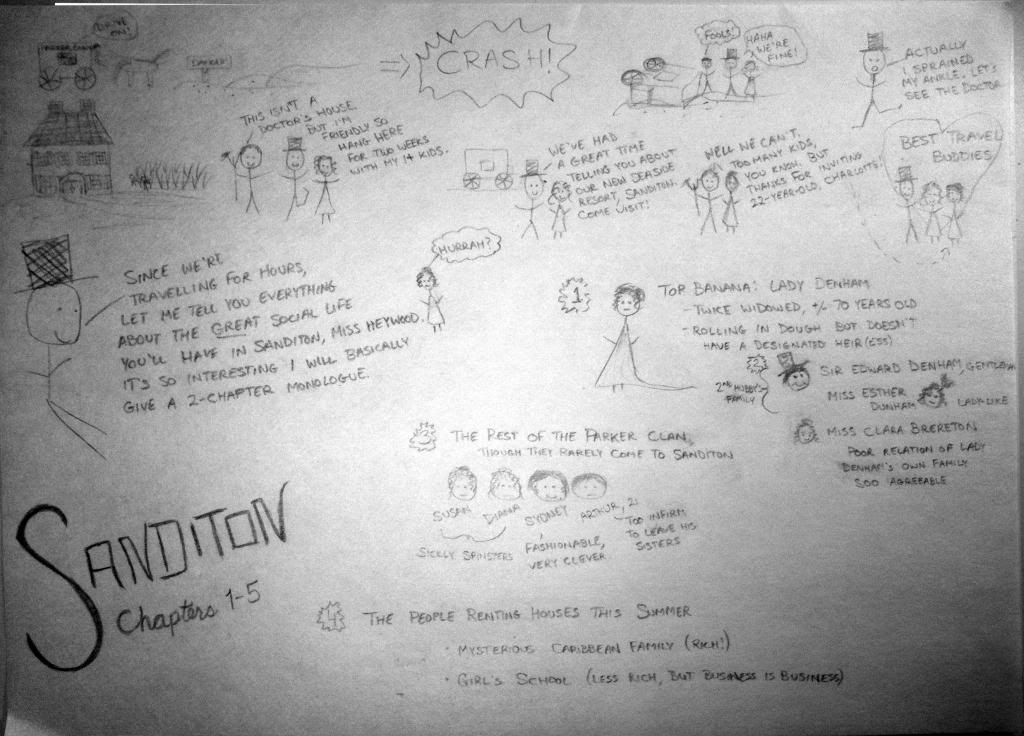 DRIVE
ON!
CRASH!
FOOLS!
HAHA
WE'RE
FINE!
ACTUALLY
I SPRAINED
MY ANKLE. LET'S
SEE THE DOCTOR
THIS ISN'T A
DOCTOR'S HOUSE.
BUT I'M
FRIENDLY SO
HANG HERE
FOR TWO WEEKS
WITH MY 14 KIDS.
WE'VE HAD
A GREAT TIME
TELLING YOU ABOUT
OUR NEW SEASIDE
RESORT, SANDITON.
COME VISIT!
WELL WE CAN'T,
TOO MANY KIDS,
YOU KNOW. BUT
THANKS FOR INVITING
22-YEAR-OLD, CHARLOTTE!
BEST TRAVEL
BUDDIES
SINCE WE'RE
TRAVELLING FOR HOURS,
LET ME TELL YOU EVERYTHING
ABOUT THE GREAT SOCIAL LIFE
YOU'LL HAVE IN SANDITON, MISS HEYWOOD.
IT'S SO INTERESTING I WILL BASICALLY
GIVE A 2-CHAPTER MONOLOGUE.
HURRAH?
1
TOP BANANA: LADY DENHAM
- TWICE WIDOWED, +/- 70 YEARS OLD
- ROLLING IN DOUGH BUT DOESN'T
HAVE A DESIGNATED HEIR(ESS)
2
2ND HUBBY'S
FAMILY
SIR EDWARD DENHAM, GENTLEMAN
MISS ESTHER
DUNHAM
LADY-LIKE
MISS CLARA BRERETON
POOR RELATION OF LADY
DENHAM'S OWN FAMILY
SOO AGREEABLE
3
THE REST OF THE PARKER CLAN,
THOUGH THEY RARELY COME TO SANDITON
SUSAN
DIANA
SYDNEY
ARTHUR, 21
SICKLY SPINSTERS
FASHIONABLE,
VERY CLEVER
TOO INFIRM
TO LEAVE HIS
SISTERS
SANDITON
Chapters 1-5
4
THE PEOPLE RENTING HOUSES THIS SUMMER
· MYSTERIOUS CARIBBEAN FAMILY (RICH!)
· GIRL'S SCHOOL (LESS RICH, BUT BUSINESS IS BUSINESS)